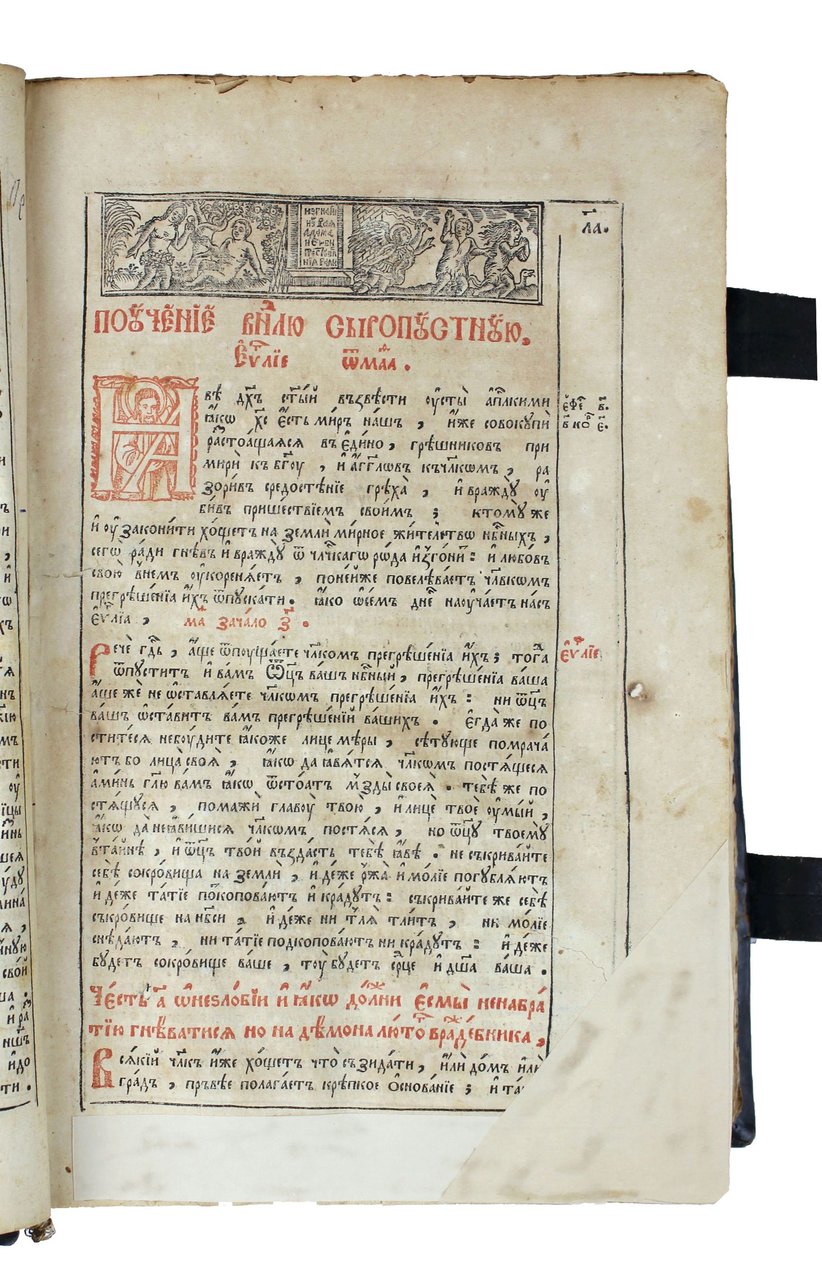 ла.
ПОꙊЧЕ́НЇЕ В НⷣЛЮ СЫРОПꙊСТНꙊЮ,
Єѵⷢ҇лїе ѿ маⷴа.
Ꙗвѣ дх҃ъ ст҃ы́й възвѣсти оусты̀ ап҇лкими
ꙗ҆́кѡ хс҃ є҆́сть ми́ръ на́шъ, и҆́же совокупѝ
расто́ѧщаѧсѧ въ є҆ди́но, грѣ́шников при
мирѝ къ бг҃оу, и҆ а҆́гг҃лѡвъ къ чл҃кѡмъ, ра
зори́въ средостѣ́нїе грѣха̀, и҆ враждꙋ̀ оу҆
би́въ прише́ствїемъ свои́мъ; к томꙋ же
и҆ оу҆закони́ти хо́щетъ на землѝ ми́рное жи́телствѡ нб҃ныхъ,
сегѡ̀ ра́ди гнѣ́въ и҆ враждꙋ̀ ѿ чл҃ческагѡ ро́да и҆зго́нит: и҆ любо́вь
свою̀ в не́мъ оу҆коренѧ́етъ, поне́же повелѣва́етъ чл҃вкѡмъ
прегрѣше́нїѧ и҆́хъ ѿпуска́ти. ꙗ҆́ко ѡ҆ се́мъ дн҃е наоуча́етъ на́съ
є҆ѵⷢ҇лїа, маⷴ зача́ло з҃і.
Речѐ гдⷭ҇ь, а҆́ще ѿпуща́ете чл҃кѡм прегрѣше́нїѧ и҆́хъ; тогда̀
ѿпу́стит и҆ ва́мъ ѻ҆ц҃ъ ва́шъ нб҃ный, прегрѣше́нїѧ ва́ша
а҆́ще же не ѡ҆ставлѧ́ете чл҃кѡмъ прегрѣше́нїѧ и҆́хъ: ни ѻ҆ц҃ъ
ва́шъ ѡ҆ста́витъ ва́мъ прегрѣше́нїй ва́шихъ. є҆гда́ же по
сти́тесѧ не бꙋ́дите ꙗ҆́коже лицемѣ́ры, сѣ́тующе помрача́
ютъ бо ли́ца своѧ̀, ꙗ҆́кѡ да ꙗ҆вѧ́тсѧ чл҃кѡмъ постѧ́щесѧ
а҆ми́нь гл҃ю ва́мъ ꙗ҆́кѡ ѿстоѧ́тъ мзды̀ своеѧ̀. тебѣ́ же по
стѧ́щусѧ, пома́жи главоу̀ твою̀, и҆ лицѐ твоѐ оу҆мы́й,
ꙗ҆́кѡ да не ꙗ҆ви́шисѧ чл҃кѡмъ постѧ́сѧ, но ѻ҆ц҃у твоему̀
в та́йнѣ, и҆ ѻ҆ц҃ъ тво́й възда́сть тебѣ̀ ꙗ҆́вѣ. не съкрива́йте
себѣ̀ сокро́вища на землѝ, и҆дѣ́же ржа̀ и҆ мо́лїе погублѧ́ютъ
и҆дѣ́же та́тїе поⷣкопова́ютъ и҆ кра́дутъ: съкрива́йте же себѣ̀
съкро́вище на нб҃си, и҆дѣ́же ни тлѧ̀ тли́тъ, ни мо́лїе
снѣда́ютъ, ни та́тїе подкопова́ютъ ни кра́дутъ: и҆дѣ́же
бу́детъ сокро́вище ва́ше, тоу̀ бу́детъ срⷣце и҆ дш҃а ва́ша.
Че́сть а҃ ѡ҆ не злобїи и҆ ꙗ҆́кѡ до́лжни є҆смы̀ не на бра́
тїю гнѣ́ватисѧ но на де́мона лю́тⷢ҇о враждебника,
Всѧ́кїй чл҃къ и҆́же хо́щетъ что̀ съзида́ти, и҆лѝ до́мъ и҆лѝ
гра́дъ, пръ́вѣе полага́етъ крѣ́пкое ѻ҆снова́нїе; и҆ та
є҆фе в.
в ко є.
Єѵⷢ҇лїе